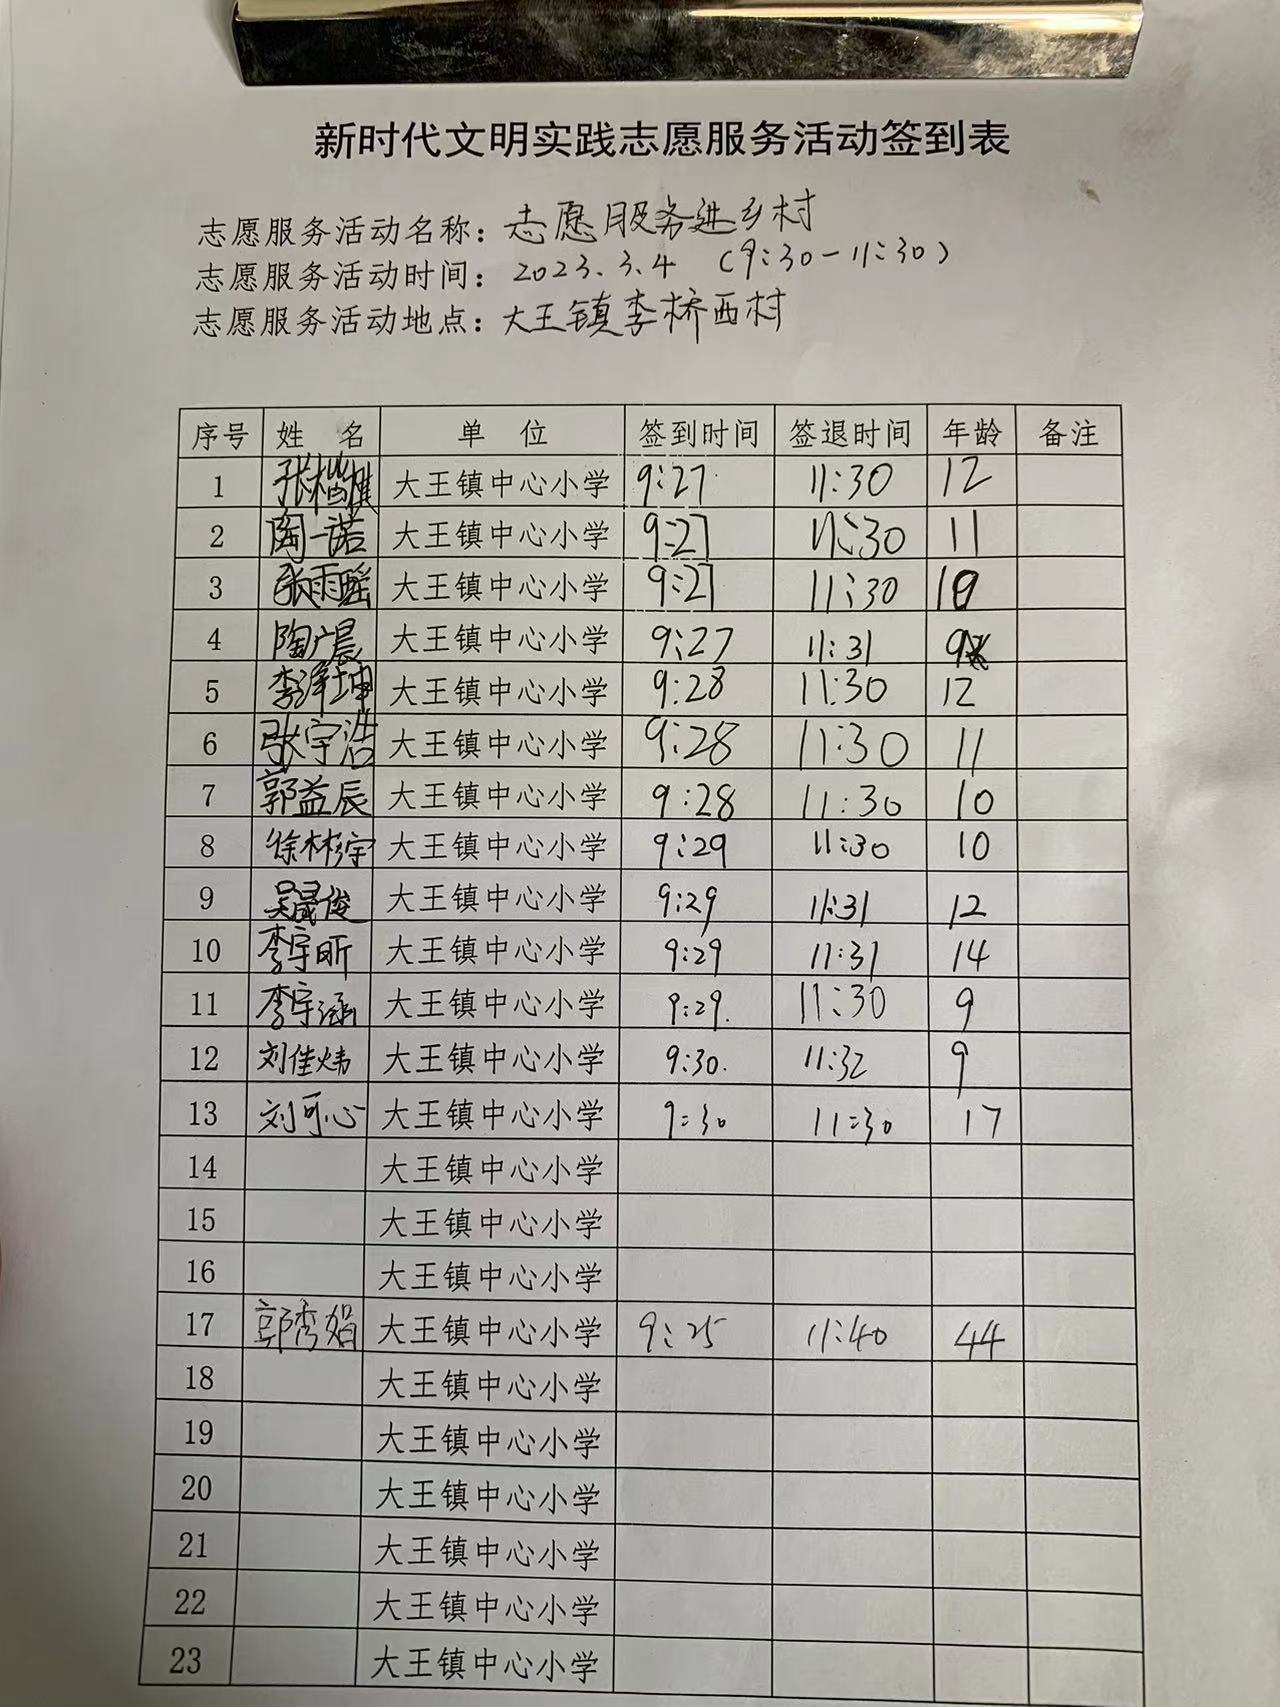 新时代文明实践志愿服务活动签到表
志愿服务活动名称：志愿服务进乡村
志愿服务活动时间：2023.3.4 （9:30-11:30）
志愿服务活动地点：大王镇李桥西村
序号 姓 名 单 位 签到时间 签退时间 年龄 备注
1 大王镇中心小学 9:27 11:30 12
2 陶一诺 大王镇中心小学 9:27 11:30 11
3 张雨瑶 大王镇中心小学 9:27 11:30 10
4 陶广晨 大王镇中心小学 9:27 11:31 9
5 李泽坤 大王镇中心小学 9:28 11:30 12
6 张宇浩 大王镇中心小学 9:28 11:30 11
7 郭益辰 大王镇中心小学 9:28 11:30 10
8 徐彬宇 大王镇中心小学 9:29 11:30 10
9 吴晟俊 大王镇中心小学 9:29 11:31 12
10 李宇昕 大王镇中心小学 9:29 11:31 14
11 李宇涵 大王镇中心小学 9:29. 11:30 9
12 刘佳炜 大王镇中心小学 9:30. 11:32 9
13 刘可心 大王镇中心小学 9:30 11:30 17
14 大王镇中心小学
15 大王镇中心小学
16 大王镇中心小学
17 郭秀娟 大王镇中心小学 9:25 11:40 44
18 大王镇中心小学
19 大王镇中心小学
20 大王镇中心小学
21 大王镇中心小学
22 大王镇中心小学
23 大王镇中心小学